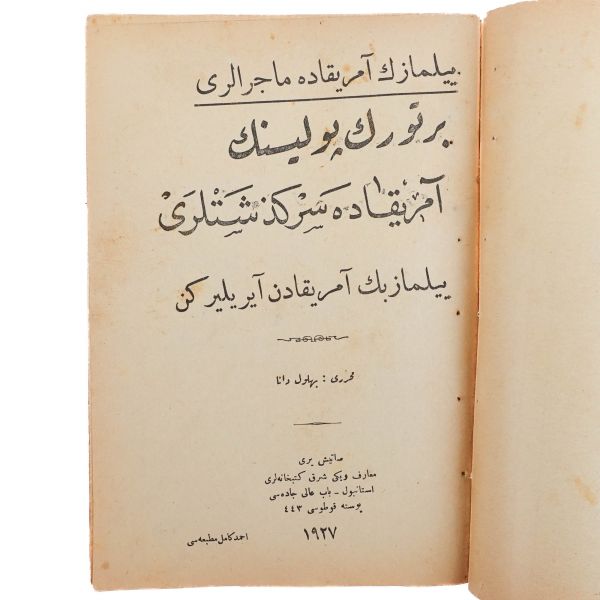 ییلمازك آمریقاده ماجرالری
بر تورك پولیسنك
آمریقاده سَركذشتلری
ییلماز بك آمریقادن آیریلیركن
محرری : بهلول دانا
صاتیش یری
معارف ویكی شرق كتبخانه‌لری
استانبول - باب عالی جاده‌سی
پوسته قوطوسی ٤٤٣
١٩٢٧
احمد كامل مطبعه‌سی